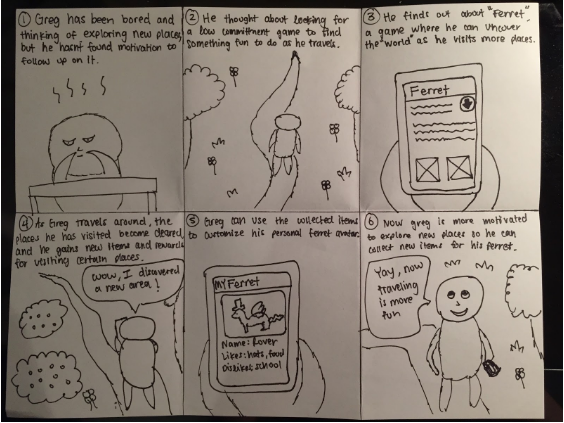 ① Greg has been bored and
thinking of exploring new places,
but he hasn't found motivation to
follow up on it.
② He thought about looking for
a low commitment game to find
something fun to do as he travels.
③ He finds out about "Ferret",
a game where he can uncover
the "world" as he visits more places.
Ferret
④ As Greg travels around, the
places he has visited become cleared,
and he gains new items and rewards
for visiting certain places.
wow, I discovered
a new area!
⑤ Greg can use the collected items
to customize his personal ferret avatar.
MY Ferret
Name: Rover
Likes: hats, food
Dislikes: school
⑥ Now greg is more motivated
to explore new places so he can
collect new items for his ferret.
Yay, now
traveling
is more
fun